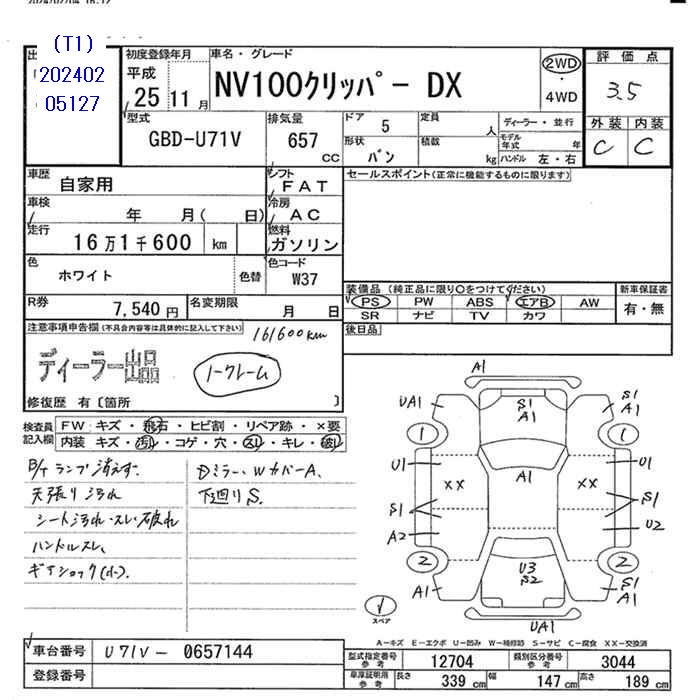 (T1)
202402
05127
初度登録年月
平成
25 11 月
車名・グレード
NV100クリッパー DX
2WD
・
4WD
評価点
3.5
外装 内装
C C
型式
GBD-U71V
排気量
657
CC
ドア 5
形状 バン
定員 人
積載 kg
ディーラー・並行
モデル年式 年
ハンドル 左・右
車歴
自家用
シフト
FAT
セールスポイント(正常に機能するものに限ります)
車検
年 月( 日)
冷房
AC
走行
16万1千600 km
燃料
ガソリン
色
ホワイト
色替
色コード
W37
装備品(純正品に限り○をつけてください)
PS PW ABS エアB AW
SR ナビ TV カワ
新車保証書
有・無
R券
7,540 円
名変期限
月 日
後日品
注意事項申告欄(不具合内容等は具体的に記入して下さい)
161600km
ディーラー出品
ノークレーム
修復歴 有〔箇所 〕
検査員
記入欄
FW キズ・飛石・ヒビ割・リペア跡・×要
内装 キズ・汚れ・コゲ・穴・スレ・キレ・破れ
B/Tランプ消えず.
天張り汚れ
シート汚れ・スレ・破れ
ハンドルスレ、
ギアショック(小).
Dミラー、WカバーA、
下廻りS.
A1
UA1
S1
A1
S1
A1
1
1
U1
U1
A1
XX
XX
S1
S1
A2
U2
2
2
U3
S2
A1
S1
A1
UA1
スペア
A−キズ E−エクボ U−凹み W−補修跡 S−サビ C−腐食 XX−交換済
車台番号
U71V - 0657144
登録番号
型式指定番号
参考
12704
類別区分番号
参考
3044
車庫証明用
参考
長さ 339 cm
幅 147 cm
高さ 189 cm